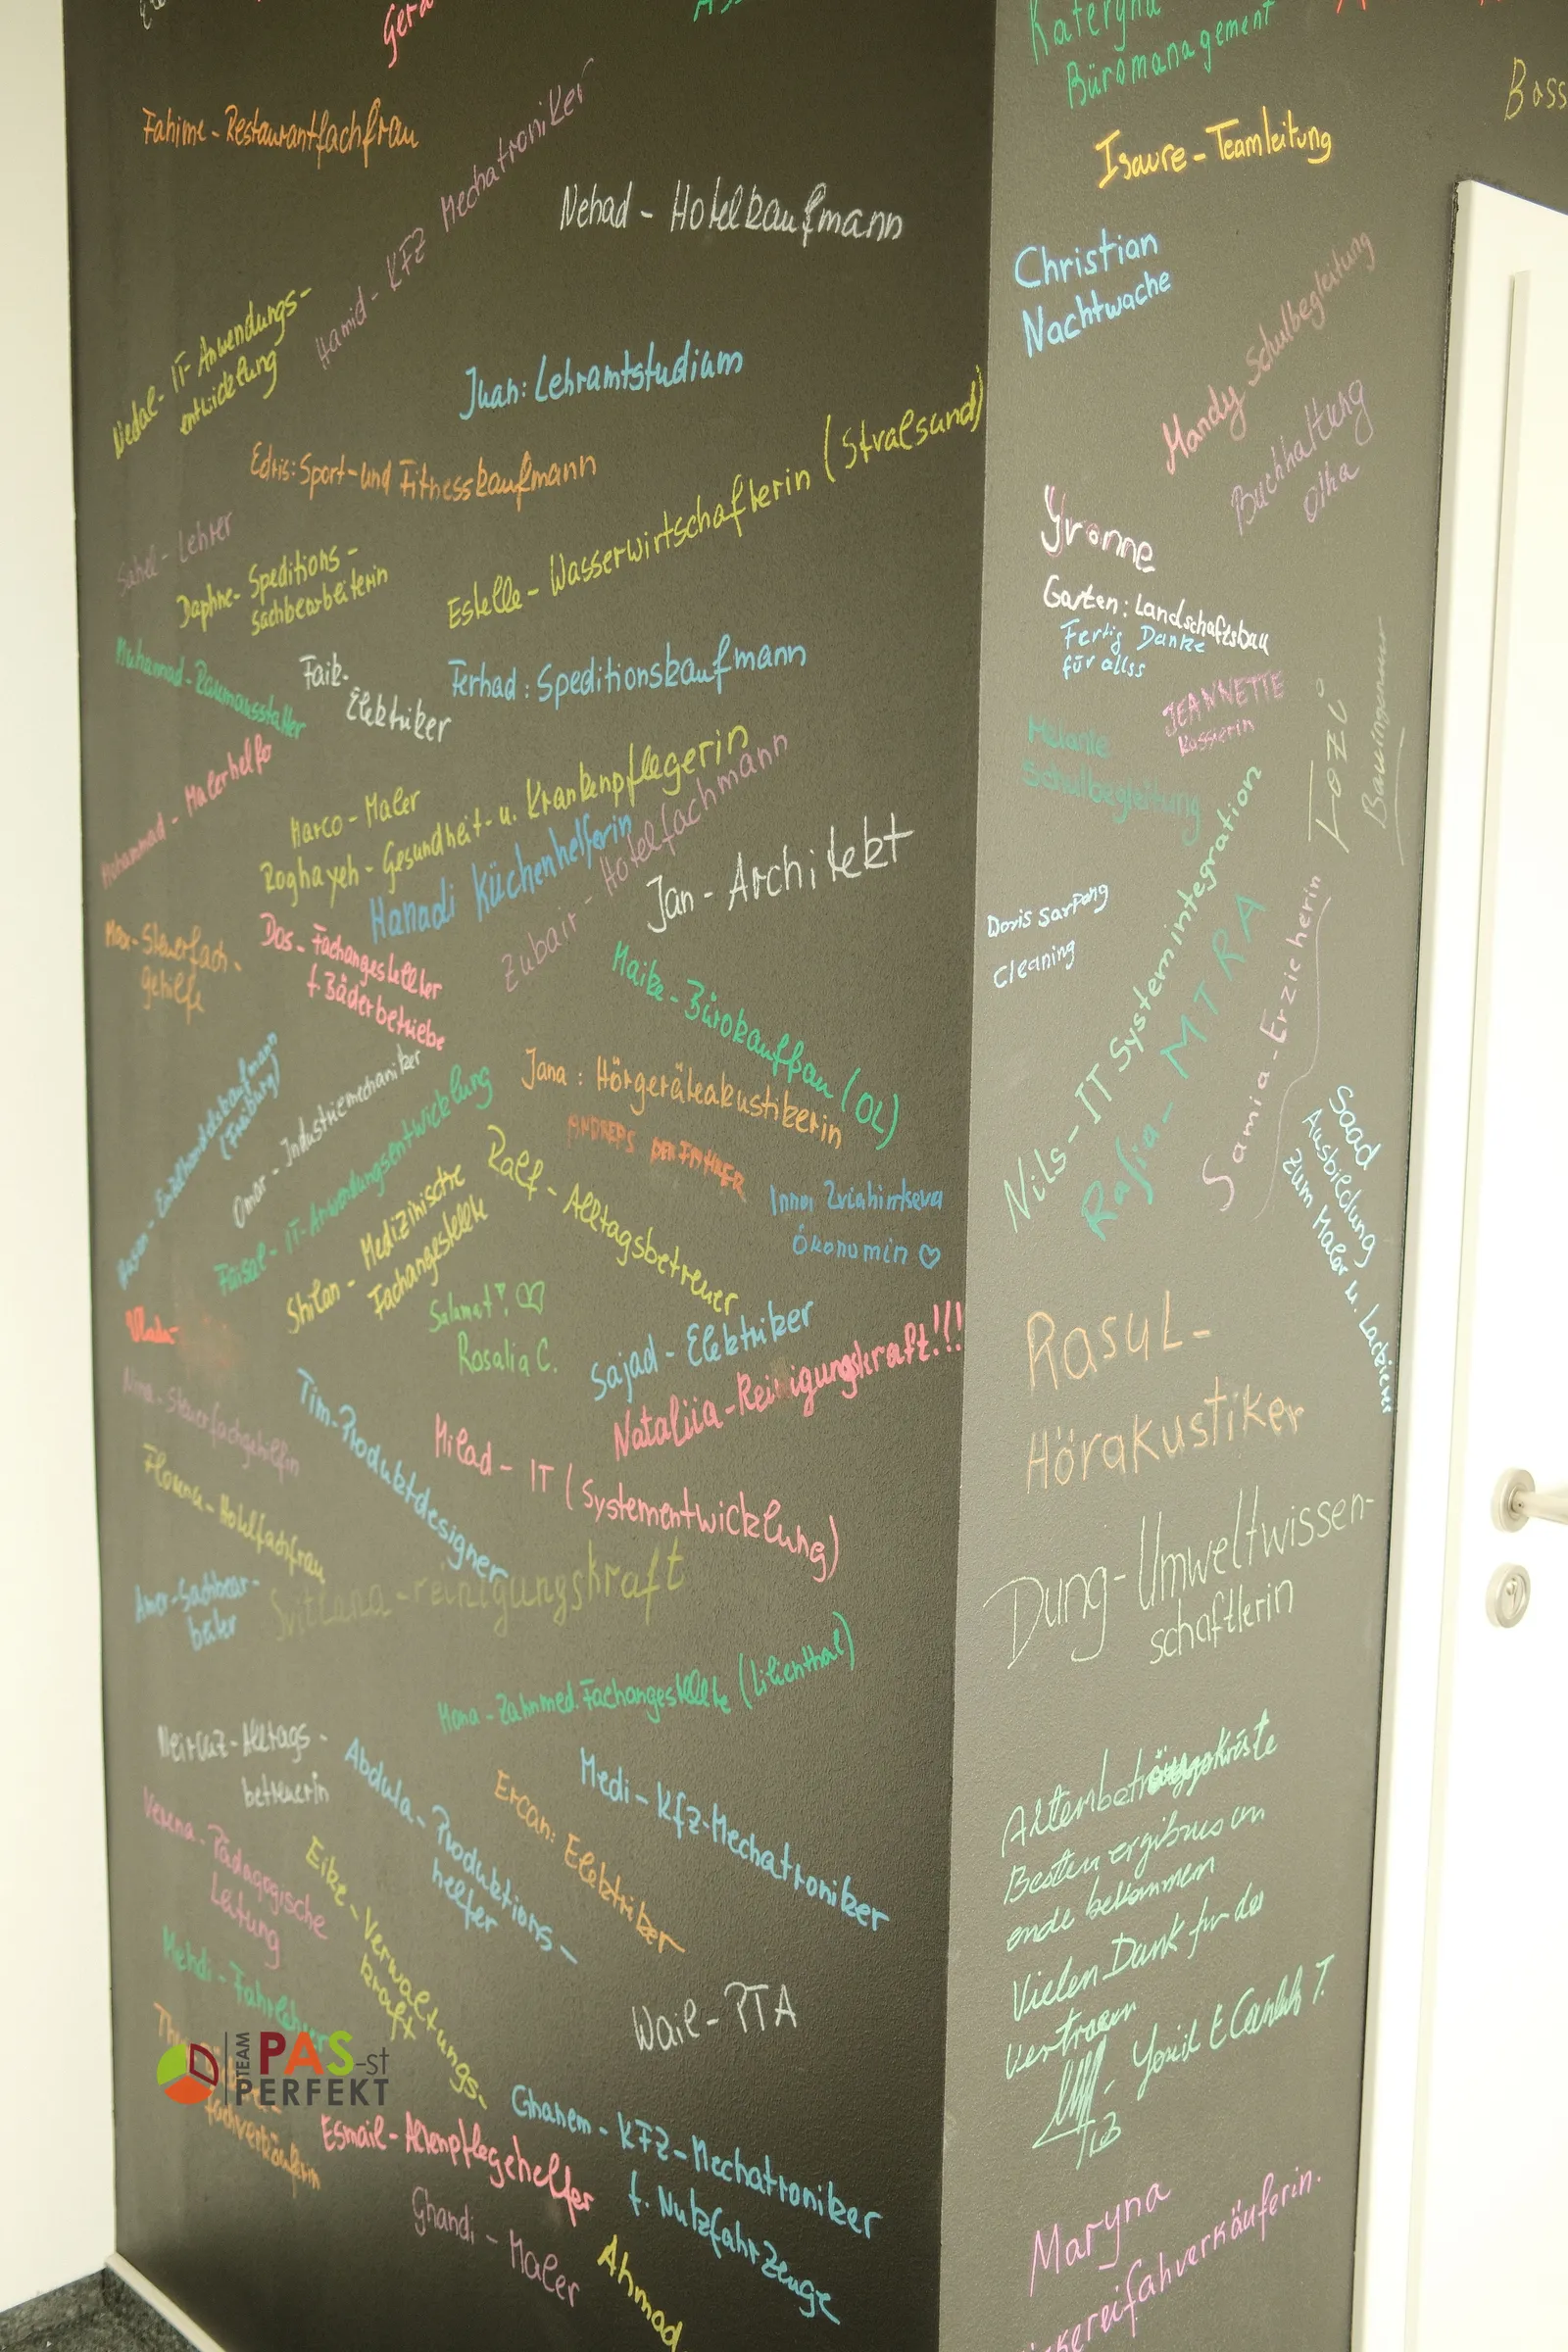 Fahime - Restaurantfachfrau
Hamid - KFZ Mechatroniker
Nehad - Hotelkaufmann
Nedal - IT-Anwendungs-
entwicklung
Juan: Lehramtstudium
Edris: Sport- und Fitnesskaufmann
Estelle - Wasserwirtschaftlerin (Stralsund)
Sahel - Lehrer
Daphne - Speditions-
sachbearbeiterin
Muhannad - Raumausstatter
Faik -
Elektriker
Ferhad: Speditionskaufmann
Mohammad - Malerhelfer
Marco - Maler
Roghayeh - Gesundheit- u. Krankenpflegerin
Hanadi Küchenhelferin
Zubair - Hotelfachmann
Jan - Architekt
Steuerfach-
gehilfe
Das - Fachangestellter
f. Bäderbetriebe
Maike - Bürokauffrau (OL)
Einzelhandelskaufmann
(Freiburg)
Omar - Industriemechaniker
Faisal - IT-Anwendungsentwicklung
Jana: Hörgeräteakustikerin
Shilan - Medizinische
Fachangestellte
Ralf - Alltagsbetreuer
Inna
Ökonomin ♡
Salamat! ♡
Rosalia C.
Sajad - Elektriker
Nataliia - Reinigungskraft!!!
Nina - Steuerfachgehilfin
Tim - Produktdesigner
Milad - IT (Systementwicklung)
Hotelfachfrau
Svitlana - reinigungskraft
Amer - Sachbear-
beiter
Mona - Zahnmed. Fachangestellte (Lilienthal)
Neiruz - Alltags-
betreuerin
Abdula - Produktions-
helfer
Ercan: Elektriker
Medi - Kfz-Mechatroniker
Verena - Pädagogische
Leitung
Eike - Verwaltungs-
kraft
Mehdi - Fahrlehrer
Wail - PTA
fachverkäuferin
TEAM
PAS-st
PERFEKT
Esmail - Altenpflegehelfer
Ghanem - KFZ-Mechatroniker
f. Nutzfahrzeuge
Ghandi - Maler
Ahmad
Kateryna
Büromanagement
Isaure - Teamleitung
Christian
Nachtwache
Mandy Schulbegleitung
Buchhaltung
Olha
Yvonne
Garten: Landschaftsbau
Fertig Danke
für allss
JEANNETTE
Kassierin
Melanie
Schulbegleitung
Bauingenieur
Doris Sarpong
Cleaning
Nils - IT Systemintegration
Rasia - MTRA
Samia - Erzieherin
Saad
Ausbildung
zum Maler u. Lackierer
Rasul -
Hörakustiker
Dung - Umweltwissen-
schaftlerin
Besten ergibnus am
ende bekommen
Vielen Dank für das
Vertrauen
Maryna